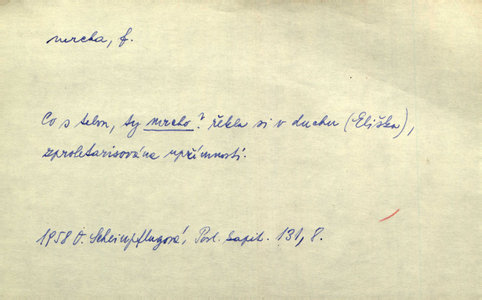 mrcha, f.
Co s tebou, ty mrcho? řekla si v duchu (Eliška),
zproletarisována upřímností.
1958 O. Scheinpflugová, Posl. kapit. 131, 8.